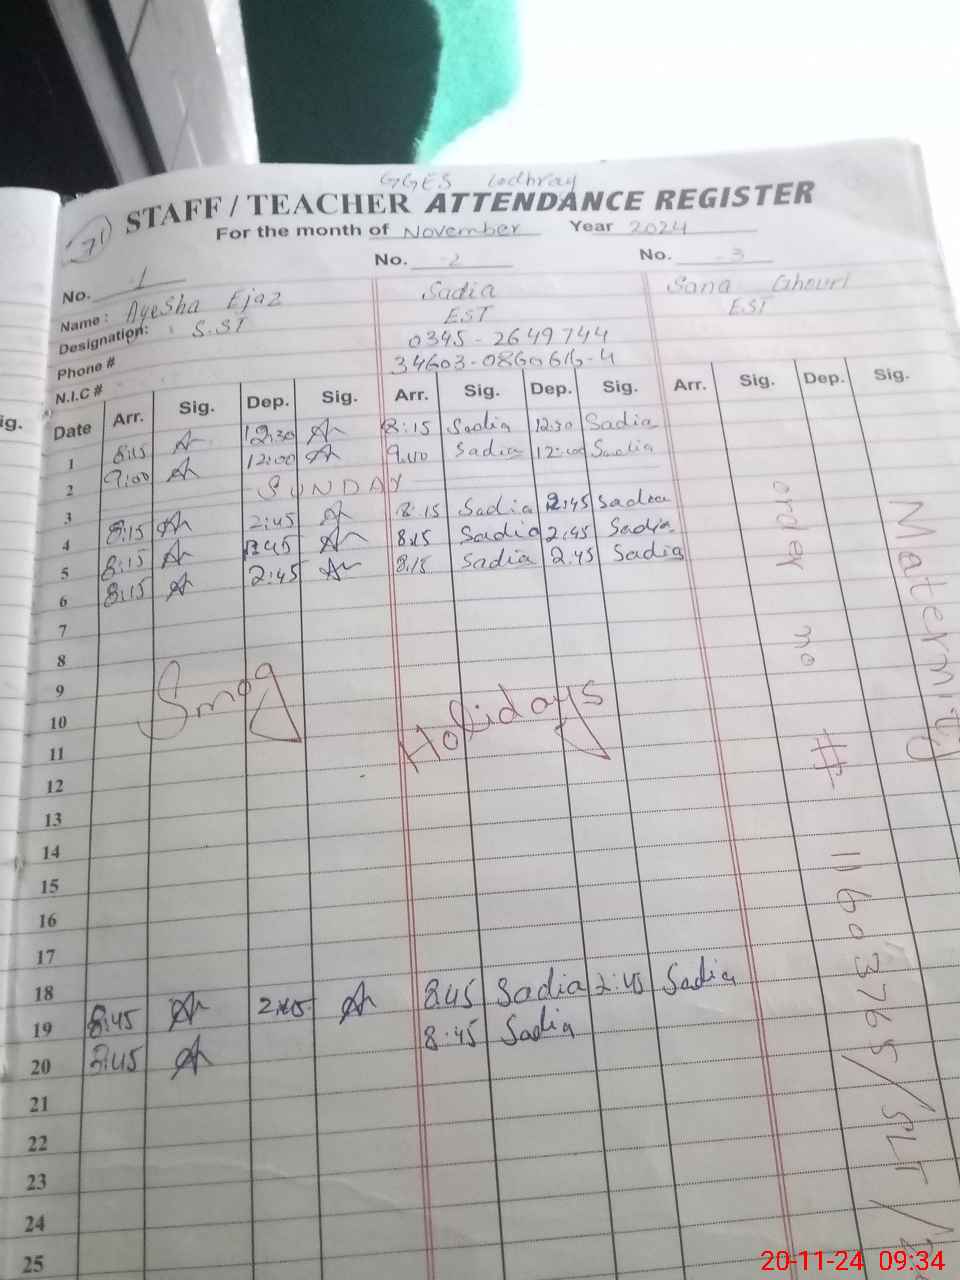 GGES Lodhray
71
STAFF / TEACHER ATTENDANCE REGISTER
For the month of November Year 2024
No. 1 No. 2 No. 3
Name : Ayesha Ejaz Sadia Sana Ghouri
Designation: S.ST EST EST
Phone # 0345-2649744
N.I.C #
ig.
Date Arr. Sig. Dep. Sig. Arr. Sig. Dep. Sig. Arr. Sig. Dep. Sig.
1 8:15 12:30 8:15 Sadia 12:30 Sadia
2 9:00 12:00 9:00 Sadia 12:00 Sadia
3 SUNDAY
4 8:15 2:45 8:15 Sadia 2:45 Sadia
5 8:15 2:45 8:15 Sadia 2:45 Sadia
6 8:15 2:45 8:15 Sadia 2:45 Sadia
7
8
9
10
Smog Holidays
11
12
13
14
15
16
17
18
19 8:45 2:45 8:45 Sadia 2:45 Sadia
20 8:45 8:45 Sadia
21
22
23
24
25
Maternity
order no # 11603765/SLT/
20-11-24 09:34